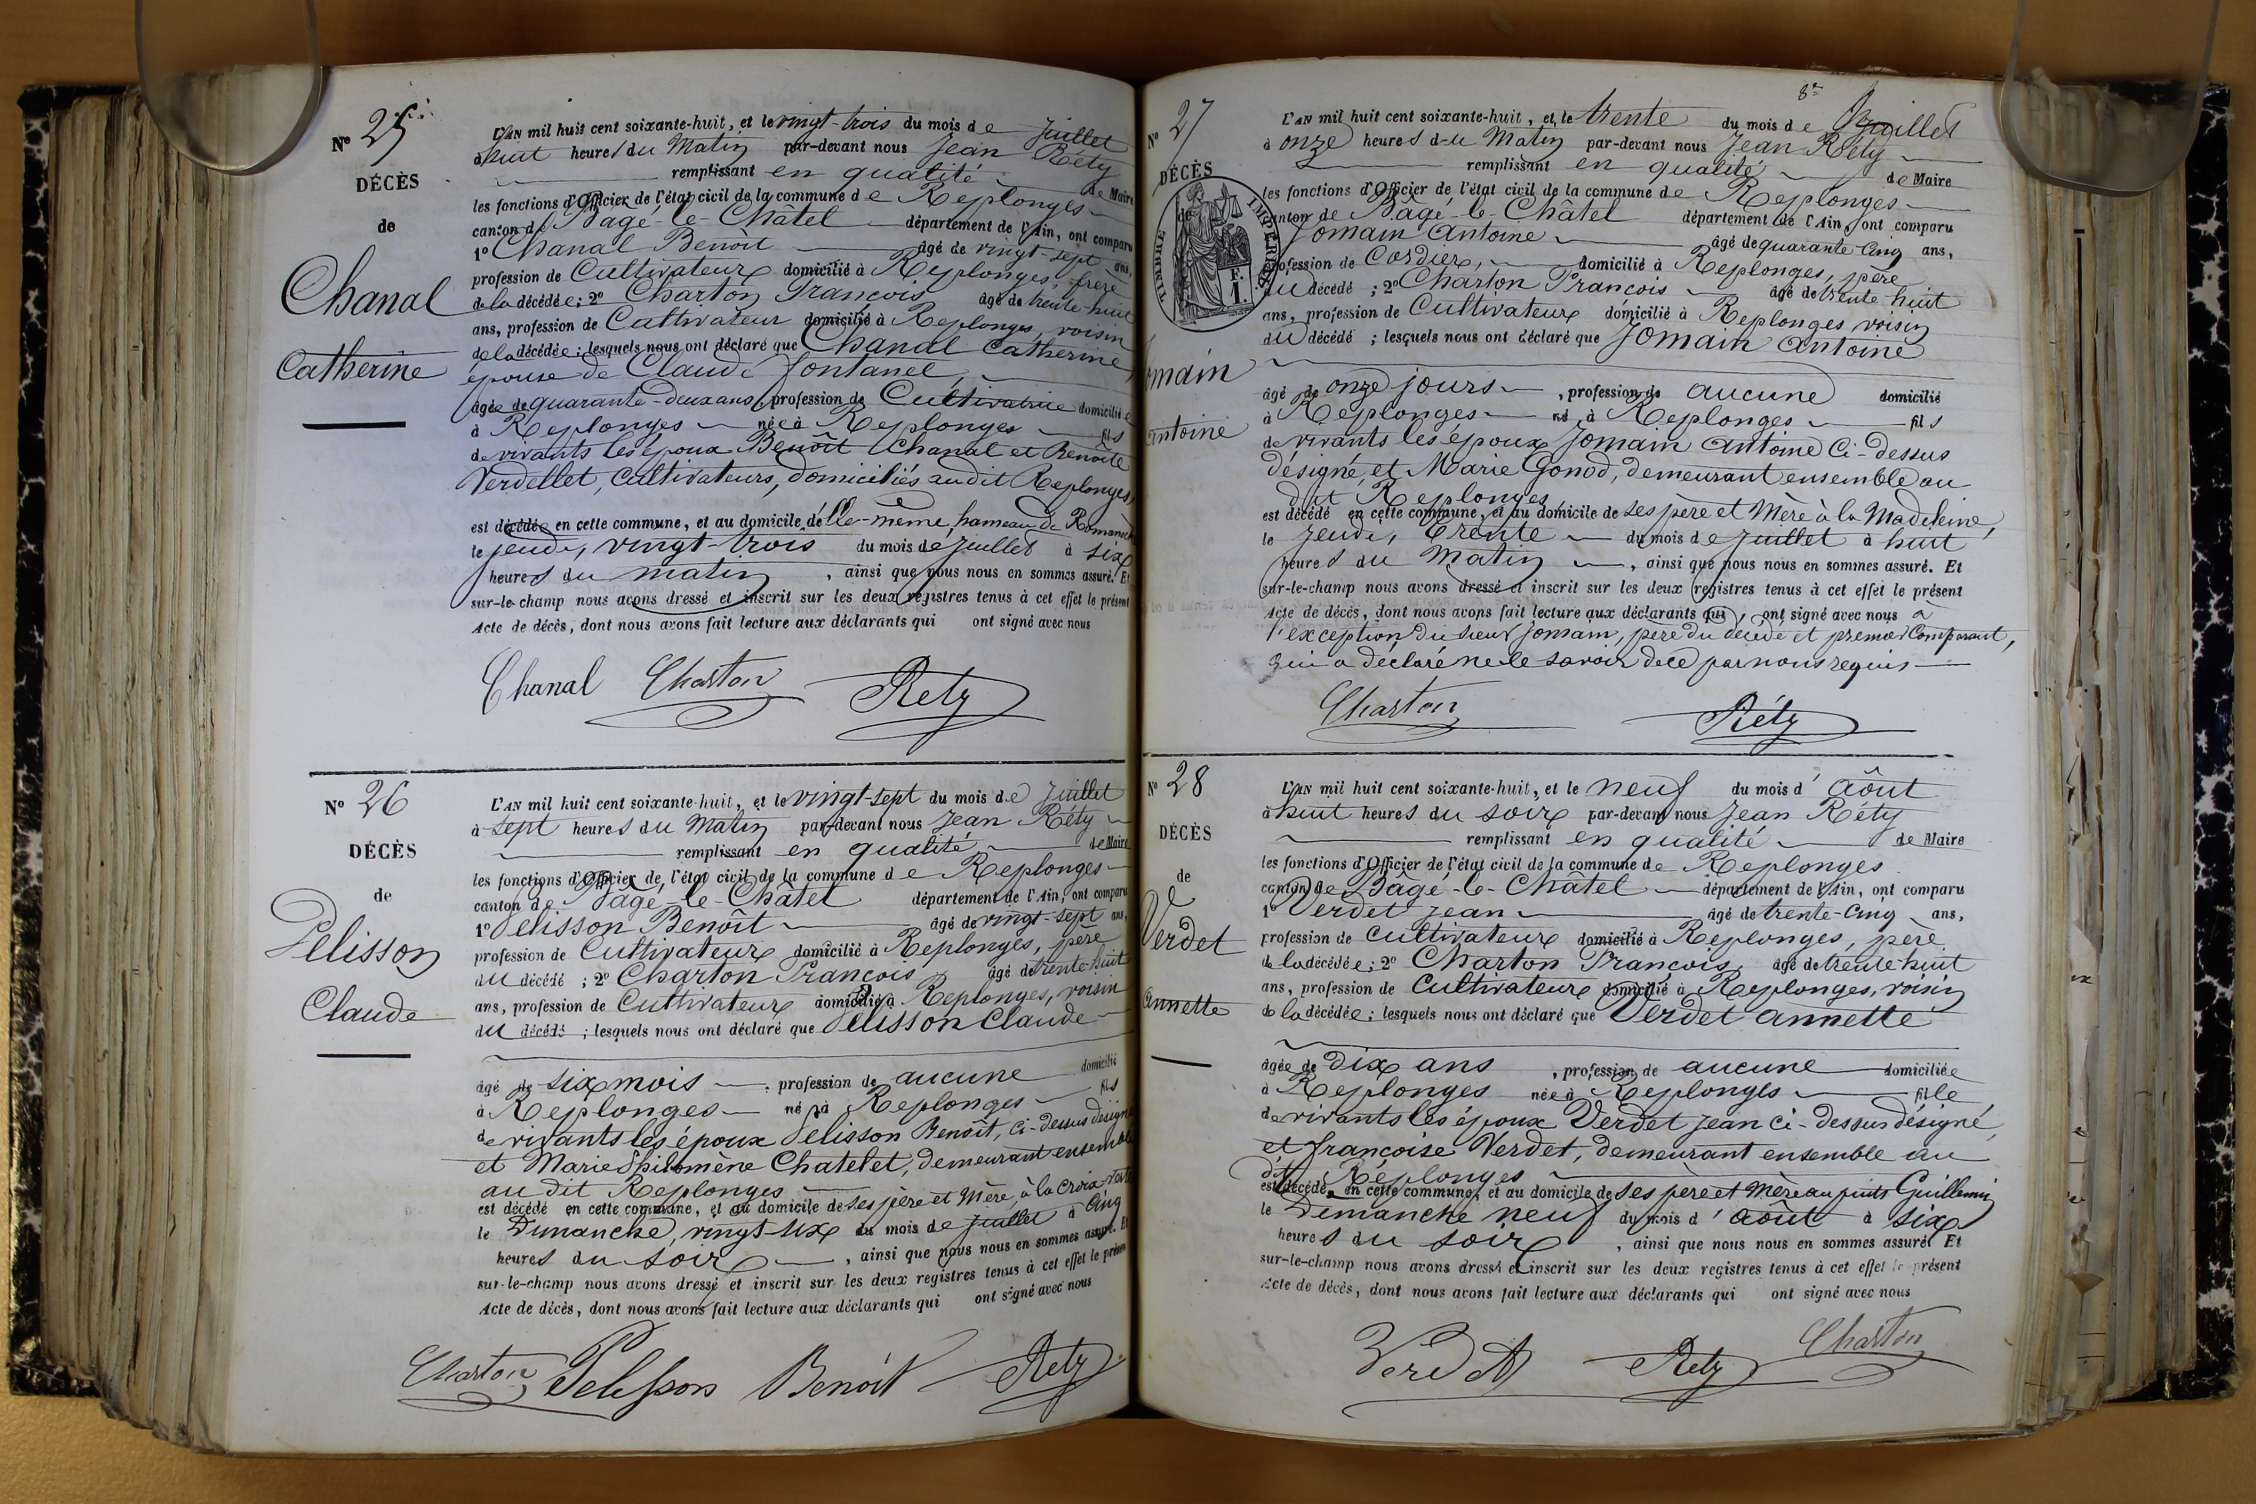 Nº 25
DÉCÈS
de
Chanal
Catherine
L'AN mil huit cent soixante-huit, et le vingt-trois du mois de Juillet
à huit heures du Matin par-devant nous Jean Réty
remplissant en qualité de Maire
les fonctions d'Officier de l'état civil de la commune de Replonges
canton de Bâgé-le-Châtel département de l'Ain, ont comparu
1º Chanal Benoit âgé de vingt-sept ans,
profession de Cultivateur domicilié à Replonges, frère
de la décédée; 2º Charton François âgé de trente-huit
ans, profession de Cultivateur domicilié à Replonges, voisin
de la décédée; lesquels nous ont déclaré que Chanal Catherine
épouse de Claude Fontanel,
âgée de quarante-deux ans, profession de Cultivatrice domiciliée
à Replonges née à Replonges fils
de vivants les époux Benoît Chanal et Benoîte
Verdellet, Cultivateurs, domiciliés au dit Replonges,
est décédée en cette commune, et au domicile d'elle-même, hameau de
le jeudi, vingt-trois du mois de Juillet à six
heures du matin, ainsi que nous nous en sommes assuré. Et
sur-le-champ nous avons dressé et inscrit sur les deux registres tenus à cet effet le présent
Acte de décès, dont nous avons fait lecture aux déclarants qui ont signé avec nous
Chanal Charton Rety
Nº 26
DÉCÈS
de
Pelisson
Claude
L'AN mil huit cent soixante-huit, et le vingt-sept du mois de Juillet
à sept heures du Matin par-devant nous Jean Réty
remplissant en qualité de Maire
les fonctions d'Officier de l'état civil de la commune de Replonges
canton de Bâgé-le-Châtel département de l'Ain, ont comparu
1º Pelisson Benoît âgé de vingt-sept ans,
profession de Cultivateur domicilié à Replonges, père
du décédé; 2º Charton François âgé de trente-huit
ans, profession de Cultivateur domicilié à Replonges, voisin
du décédé; lesquels nous ont déclaré que Pelisson Claude
âgé de six mois, profession de aucune domicilié
à Replonges né à Replonges fils
de vivants les époux Pelisson Benoît, ci-dessus désigné
et Marie Philomène Chatelet, demeurant ensemble
au dit Replonges
est décédé en cette commune, et au domicile de ses père et Mère, à la Croix
le Dimanche, vingt-six du mois de Juillet à Cinq
heures du soir, ainsi que nous nous en sommes assuré. Et
sur-le-champ nous avons dressé et inscrit sur les deux registres tenus à cet effet le présent
Acte de décès, dont nous avons fait lecture aux déclarants qui ont signé avec nous
Charton Pelisson Benoît Rety
8e
Nº 27
DÉCÈS
de
TIMBRE IMPÉRIAL
F. I.
Jomain
Antoine
L'AN mil huit cent soixante-huit, et le trente du mois de Juillet
à onze heures du Matin par-devant nous Jean Réty
remplissant en qualité de Maire
les fonctions d'Officier de l'état civil de la commune de Replonges
canton de Bâgé-le-Châtel département de l'Ain, ont comparu
Jomain Antoine âgé de quarante-cinq ans,
profession de Cordier, domicilié à Replonges, père
du décédé; 2º Charton François âgé de trente-huit
ans, profession de Cultivateur domicilié à Replonges voisin
du décédé; lesquels nous ont déclaré que Jomain Antoine
âgé de onze jours, profession de aucune domicilié
à Replonges né à Replonges fils
de vivants les époux Jomain Antoine Ci-dessus
désigné, et Marie Gonod, demeurant ensemble au
dit Replonges
est décédé en cette commune, et au domicile de ses père et Mère à la Madeleine,
le jeudi, trente du mois de Juillet à huit
heures du Matin, ainsi que nous nous en sommes assuré. Et
sur-le-champ nous avons dressé et inscrit sur les deux registres tenus à cet effet le présent
Acte de décès, dont nous avons fait lecture aux déclarants qui, ont signé avec nous à
l'exception du sieur Jomain, père du décédé et premier Comparant,
qui a déclaré ne le savoir de ce par nous requis
Charton Réty
Nº 28
DÉCÈS
de
Verdet
Annette
L'AN mil huit cent soixante-huit, et le neuf du mois d'Août
à huit heures du soir par-devant nous Jean Réty
remplissant en qualité de Maire
les fonctions d'Officier de l'état civil de la commune de Replonges
canton de Bâgé-le-Châtel département de l'Ain, ont comparu
1º Verdet Jean âgé de trente-Cinq ans,
profession de Cultivateur domicilié à Replonges, père
de la décédée; 2º Charton François, âgé de trente-huit
ans, profession de Cultivateur domicilié à Replonges, voisin
de la décédée; lesquels nous ont déclaré que Verdet Annette
âgée de Dix ans, profession de aucune domiciliée
à Replonges née à Replonges fille
de vivants les époux Verdet Jean ci-dessus désigné,
et françoise Verdet, demeurant ensemble au
dit Replonges
est décédée en cette commune, et au domicile de ses père et Mère au puits Guillemin
le Dimanche neuf du mois d'Août à six
heures du soir, ainsi que nous nous en sommes assuré. Et
sur-le-champ nous avons dressé et inscrit sur les deux registres tenus à cet effet le présent
Acte de décès, dont nous avons fait lecture aux déclarants qui ont signé avec nous
Verdet Rety Charton